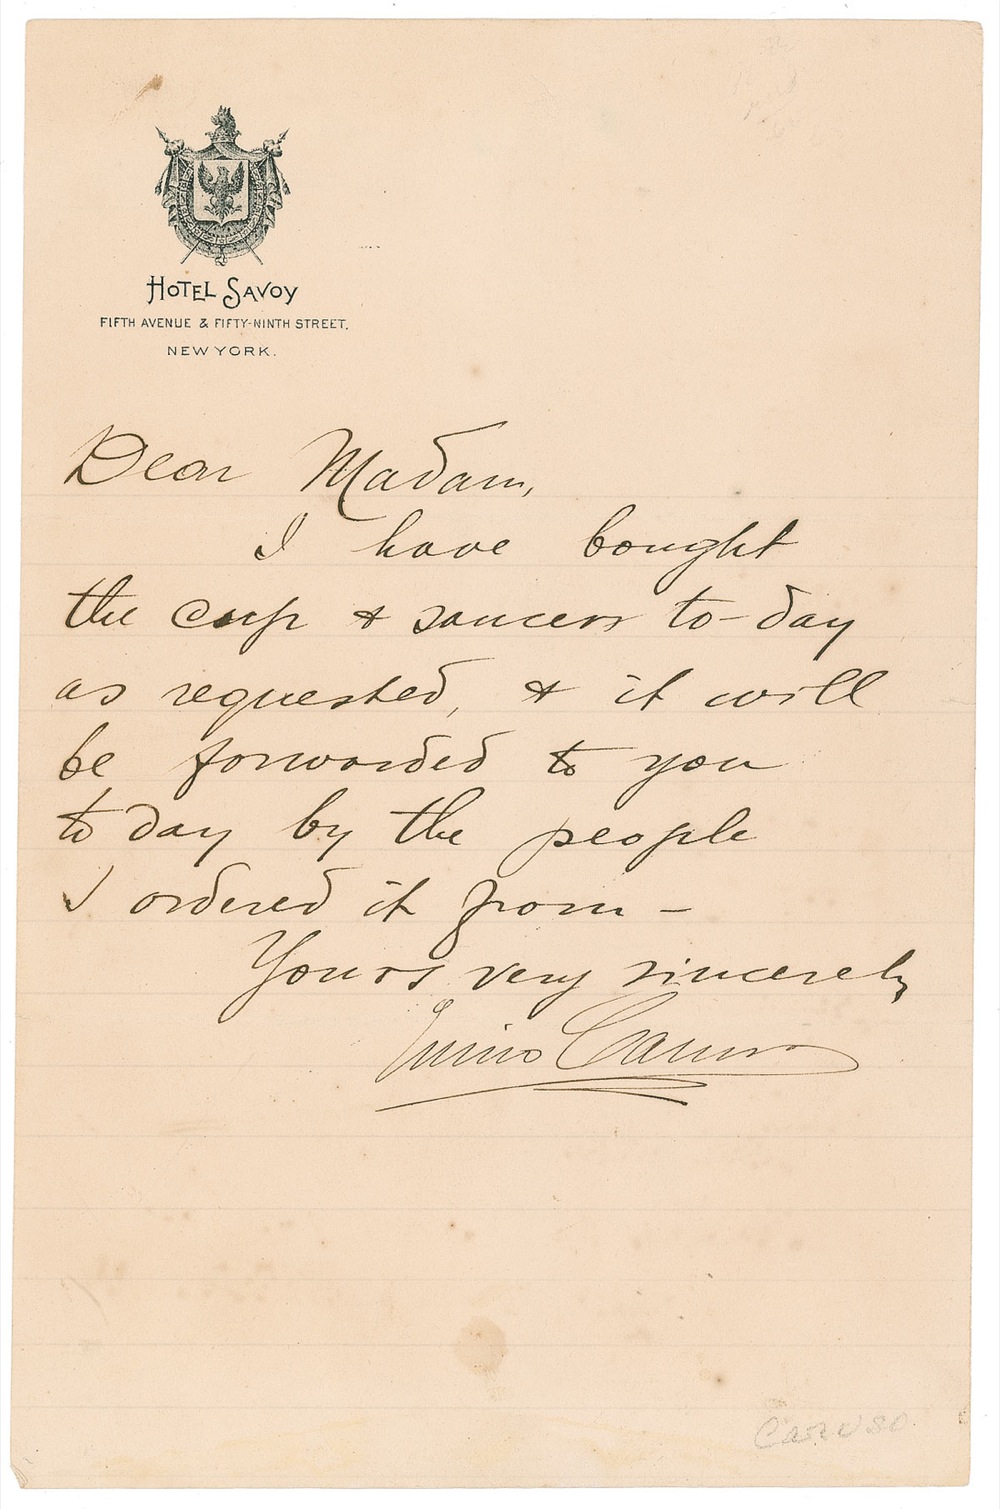 HOTEL SAVOY
FIFTH AVENUE & FIFTY-NINTH STREET,
NEW YORK.
Dear Madam,
I have bought
the cup & saucer to-day
as requested, & it will
be forwarded to you
to day by the people
I ordered it from –
Yours very sincerely
Enrico Caruso
Caruso